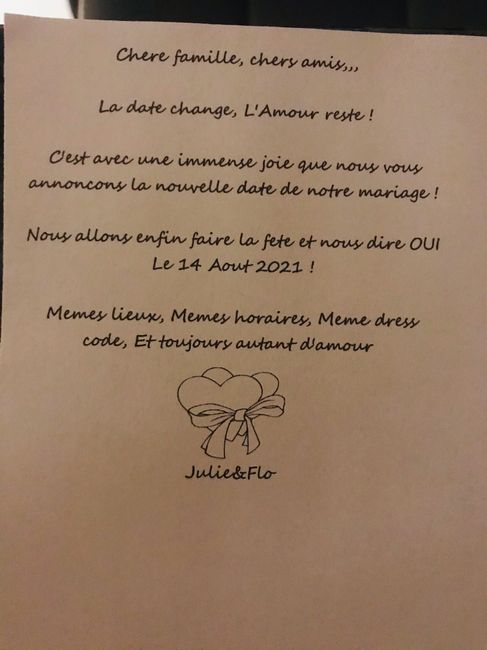 Chere famille, chers amis,,,
La date change, L'Amour reste !
C'est avec une immense joie que nous vous
annoncons la nouvelle date de notre mariage !
Nous allons enfin faire la fete et nous dire OUI
Le 14 Aout 2021 !
Memes lieux, Memes horaires, Meme dress
code, Et toujours autant d'amour
Julie&Flo